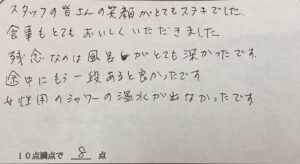 スタッフの皆さんの笑顔がとてもステキでした。
食事もとてもおいしくいただきました
残念なのは風呂がとても深かったです。
途中にもう一段あると良かったです
女性用のシャワーの温水が出なかったです。
10点満点で 8 点